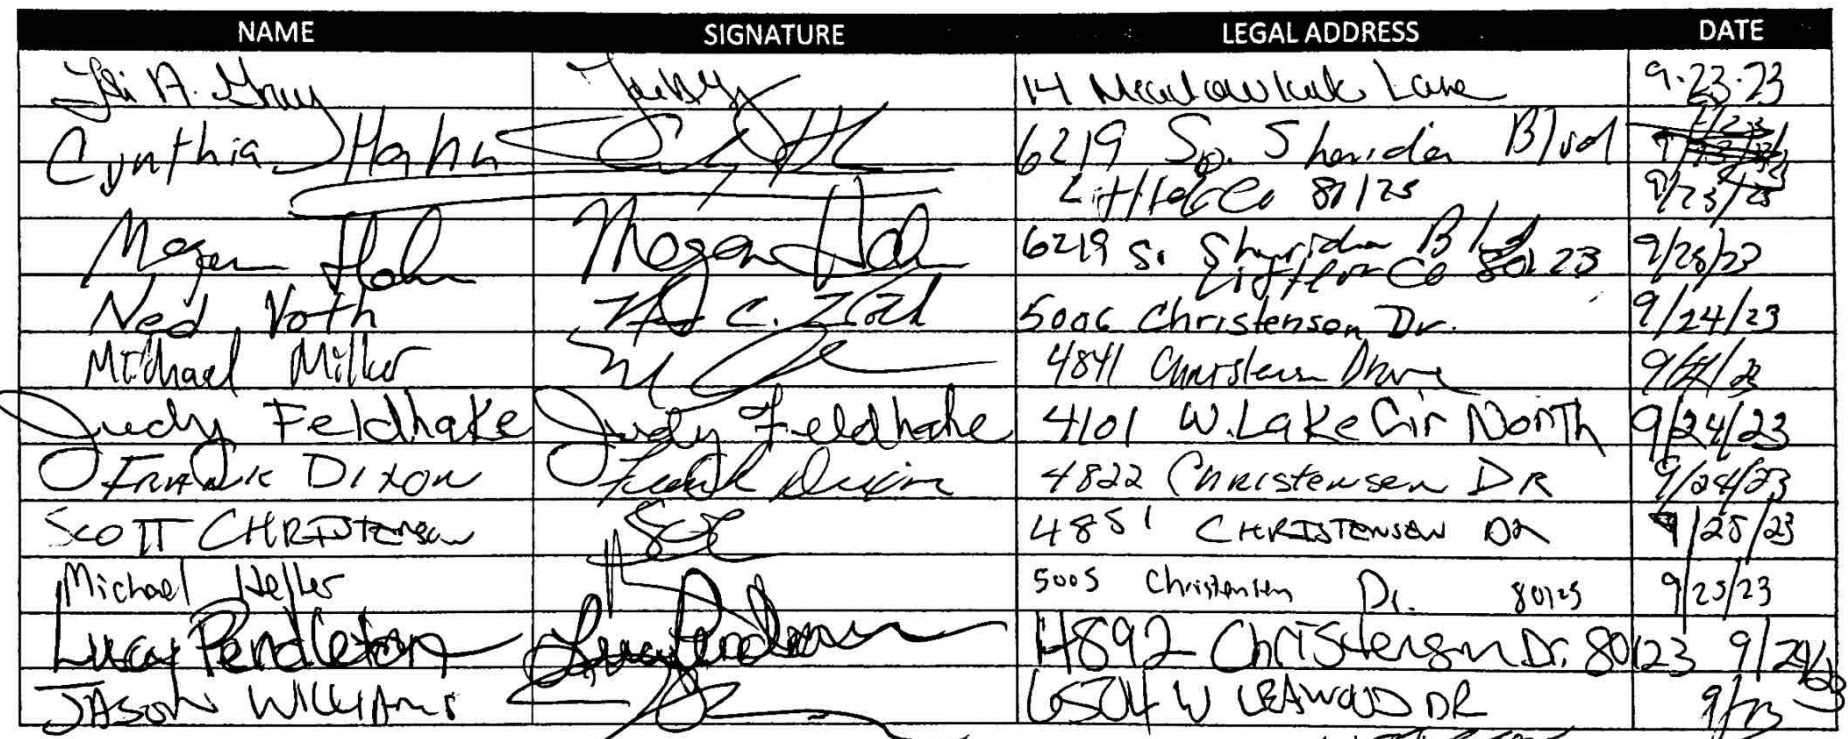 NAME SIGNATURE LEGAL ADDRESS DATE
A. Gray 14 Meadowlark Lane 9.23.23
Cynthia Hahn 6219 So. Sheridan Blvd
Co 9/23/23
Megan Hahn Megan Hah 6219 S. Sheridan Blvd 9/28/23
Co 80123
Ned Voth Ned C. Voth 5006 Christensen Dr. 9/24/23
Michael Miller 4841 Christensen Drive 9/24/23
Judy Feldhake Judy Feldhake 4101 W. Lake Cir North 9/24/23
FRANK DIXON Frank Dixon 4822 Christensen DR 9/24/23
SCOTT CHRISTENSEN 4851 CHRISTENSEN DR 9/25/23
Michael Heller 5005 Christensen Dr. 80123 9/25/23
Lucay Pendleton 4892 Christensen Dr. 80123
JASON WILLIAMS 6504 W LEAWOOD DR 9/23